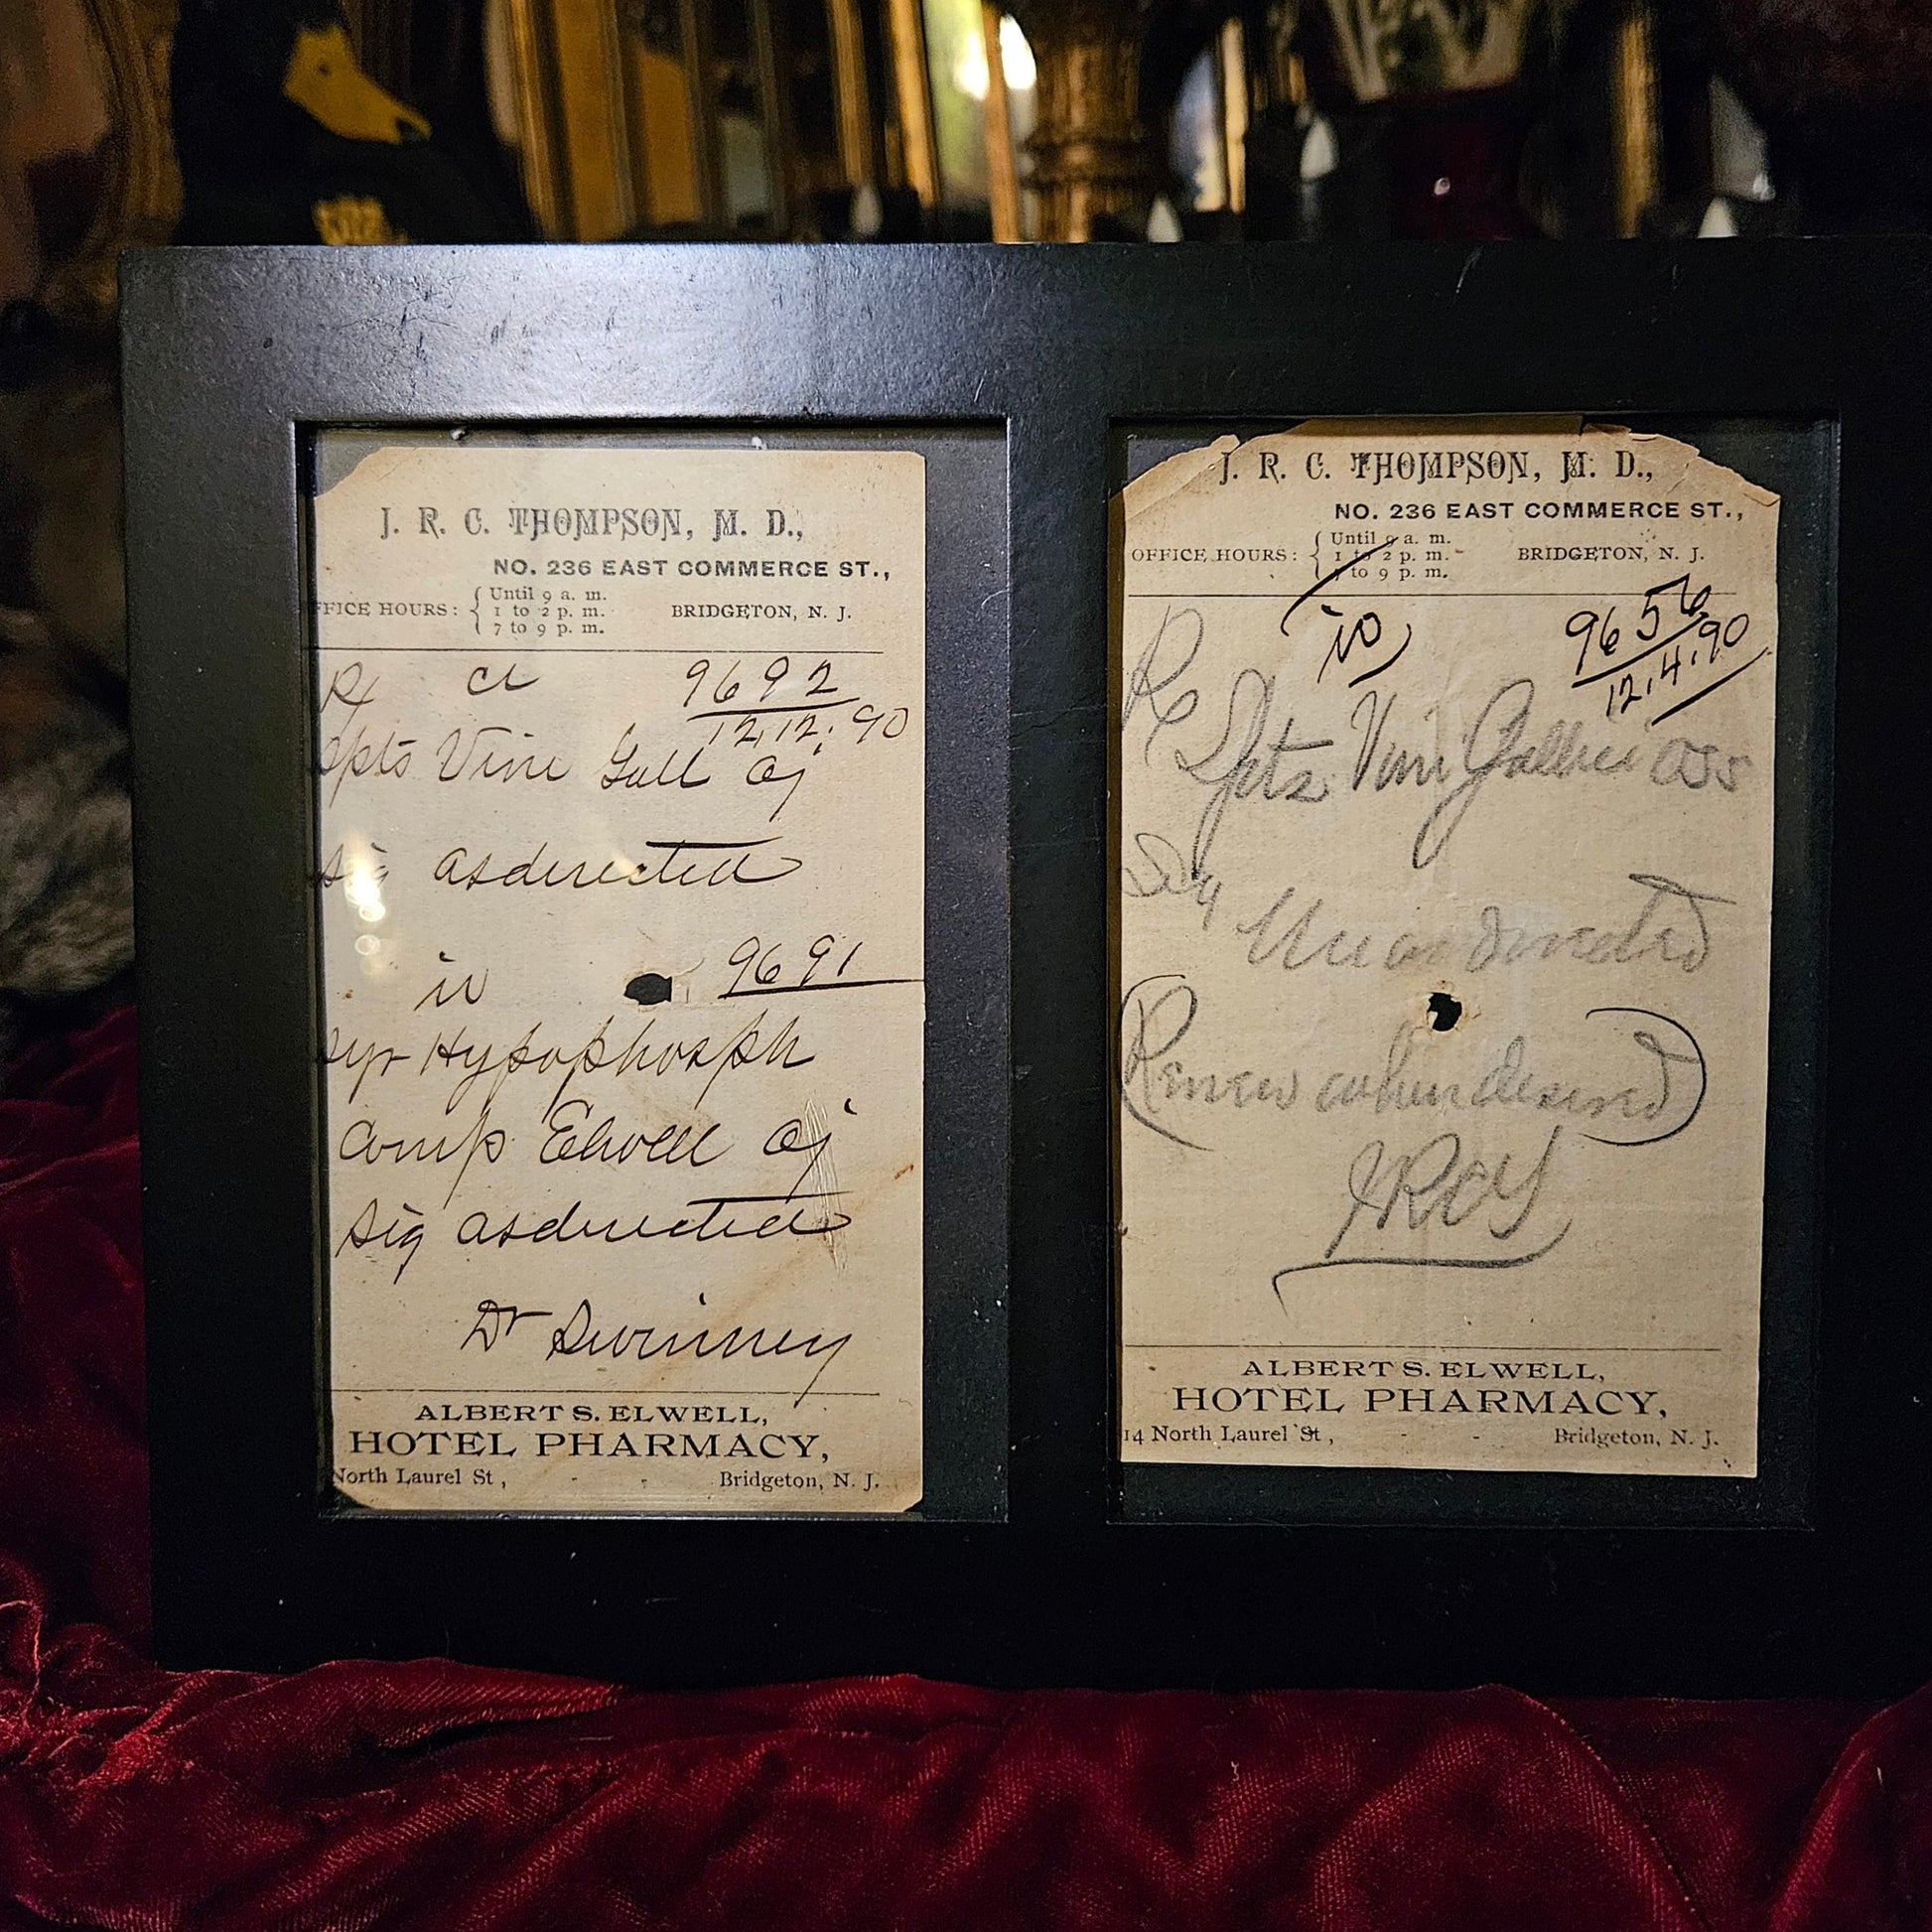 J. R. C. THOMPSON, M. D.,
NO. 236 EAST COMMERCE ST.,
FFICE HOURS: { Until 9 a. m.
1 to 2 p. m.
7 to 9 p. m.
BRIDGETON, N. J.
Rx 9692
12,12,'90
Spts Vini Gall Oj
Sig as directed
9691
Syr Hypophosph
Comp Elwell Oj
Sig as directed
Dr Swinney
ALBERT S. ELWELL,
HOTEL PHARMACY,
North Laurel St, - - Bridgeton, N. J.
J. R. C. THOMPSON, M. D.,
NO. 236 EAST COMMERCE ST.,
OFFICE HOURS: { Until 9 a. m.
1 to 2 p. m.
7 to 9 p. m.
BRIDGETON, N. J.
Rx 9656
12.4.'90
Spts Vini Gallici Oss
Sig
Use as directed
Renew when desired
JRCT
ALBERT S. ELWELL,
HOTEL PHARMACY,
14 North Laurel St, - - Bridgeton, N. J.